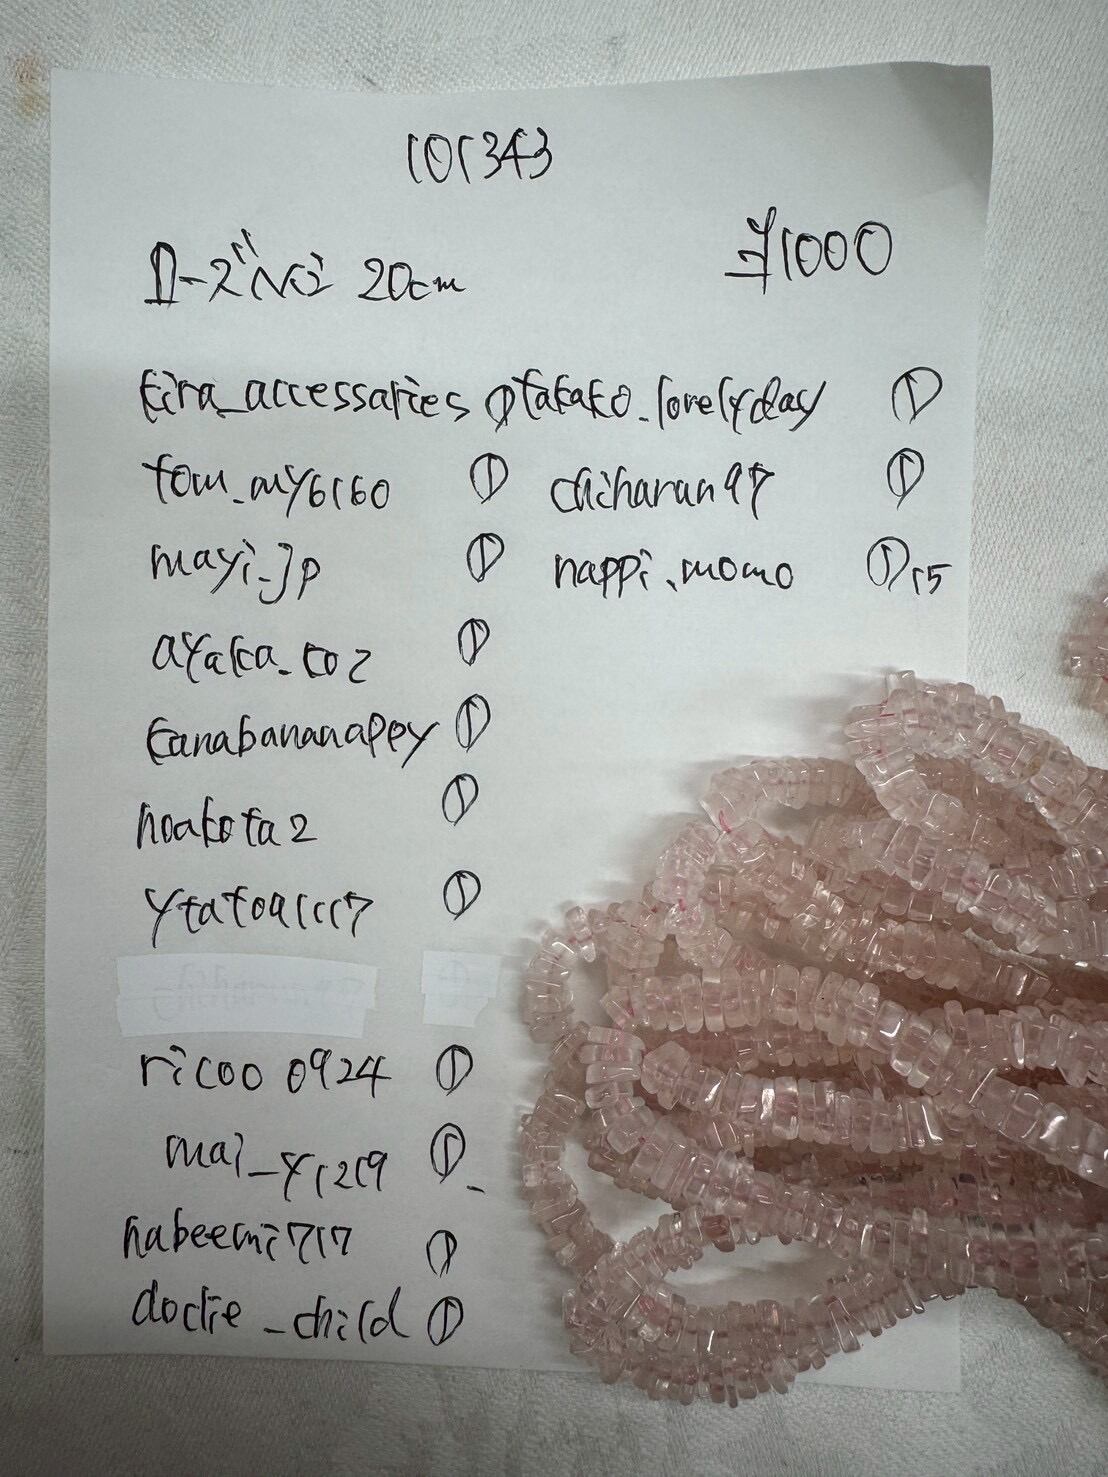 101343
ローズNo2 20cm ¥1000
kira_accessaries ① takako_lovelyday ①
tom_my6160 ① chiharun97 ①
mayi_jp ① nappi.momo ① 15
ayaka_co2 ①
kanabananapey ①
noakota2 ①
ytatoa1117 ①
ricoo0924 ①
mai_y1219 ①
nabeemi717 ①
doclie_child ①